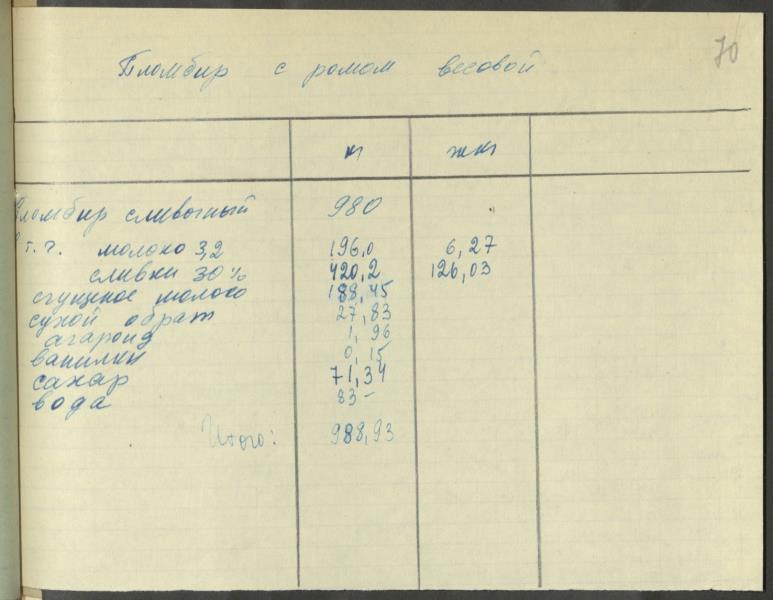 70
Пломбир с ромом весовой
кг жкг
Пломбир сливочный 980
т.ч. молоко 3,2 196,0 6,27
сливки 30% 420,2 126,03
сгущеное молоко 188,45
сухой обрат 27,83
агароид 1,96
ванилин 0,15
сахар 71,34
вода 83-
Итого: 988,93